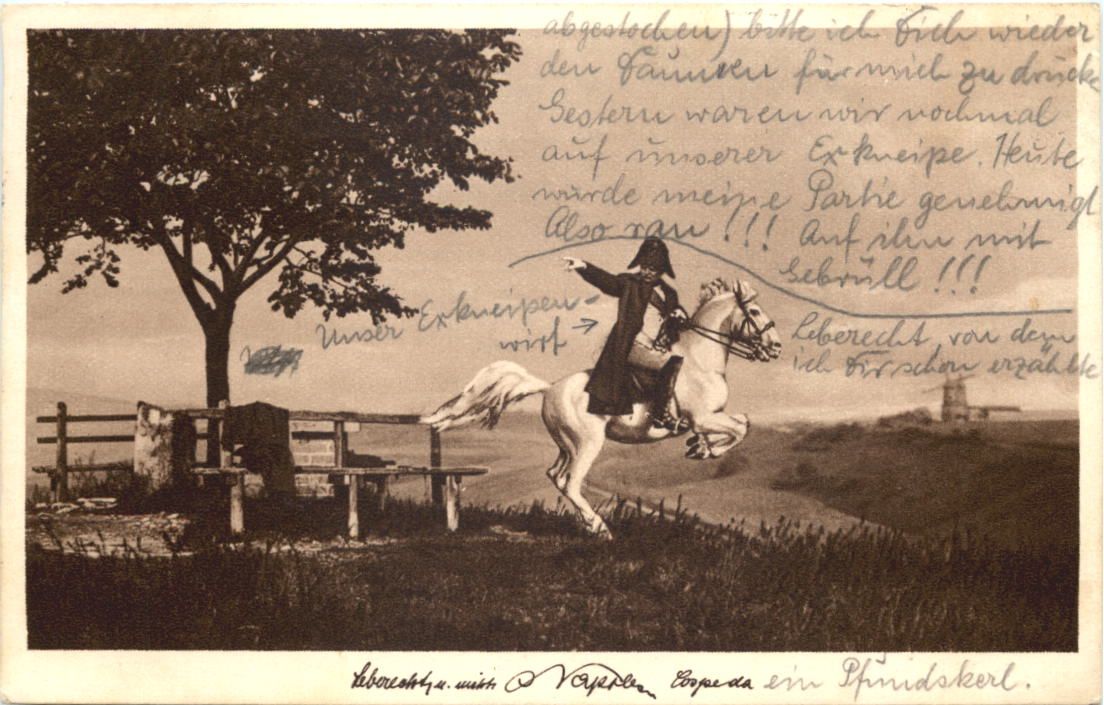 abgestochen) bitte ich Dich wieder
den Daumen für mich zu drücke
Gestern waren wir nochmal
auf unserer Exkneipe. Heute
wurde meine Partie genehmigt
Also ran!!! Auf ihn mit
Gebrüll!!!
Unser Exkneipen-
wirt →
Leberecht, von dem
ich Dir schon erzählte
Leberecht, u. Napoleon Cospeda ein Pfundskerl.